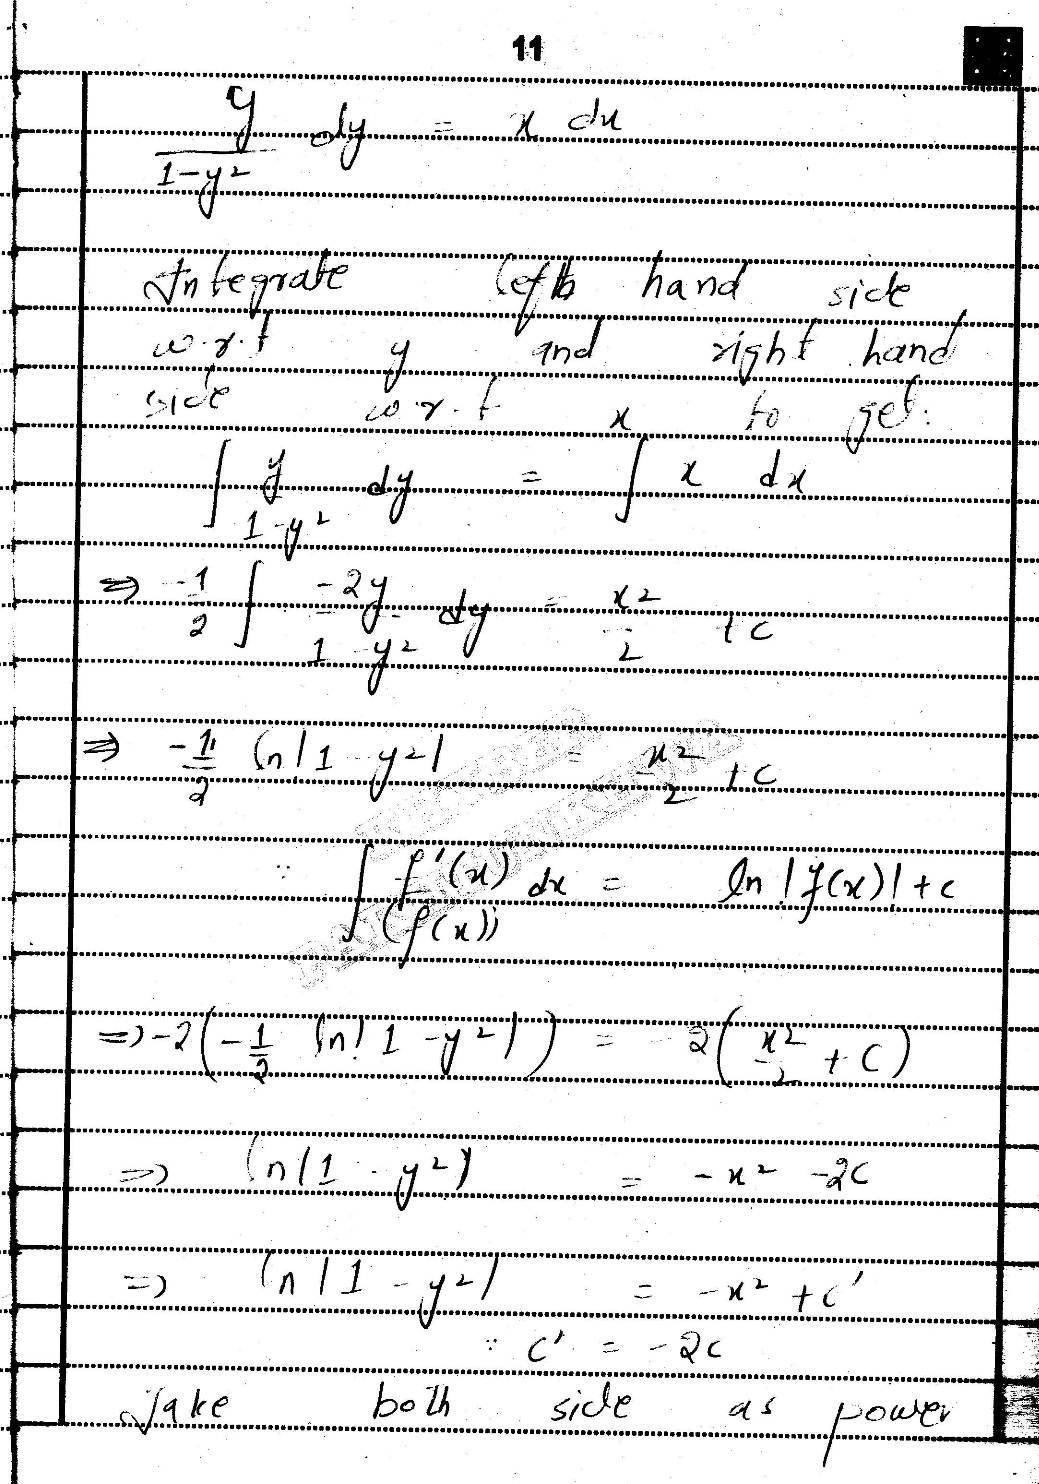 11
y/(1-y²) dy = x dx
Integrate left hand side
w.r.t y and right hand
side w.r.t x to get:
∫ y/(1-y²) dy = ∫ x dx
⇒ -1/2 ∫ -2y/(1-y²) dy = x²/2 + c
⇒ -1/2 ln|1-y²| = x²/2 + c
∵ ∫ f'(x)/(f(x)) dx = ln|f(x)| + c
⇒ -2(-1/2 ln|1-y²|) = -2(x²/2 + c)
⇒ ln|1-y²| = -x² -2c
⇒ ln|1-y²| = -x² + c'
∵ c' = -2c
Take both side as power